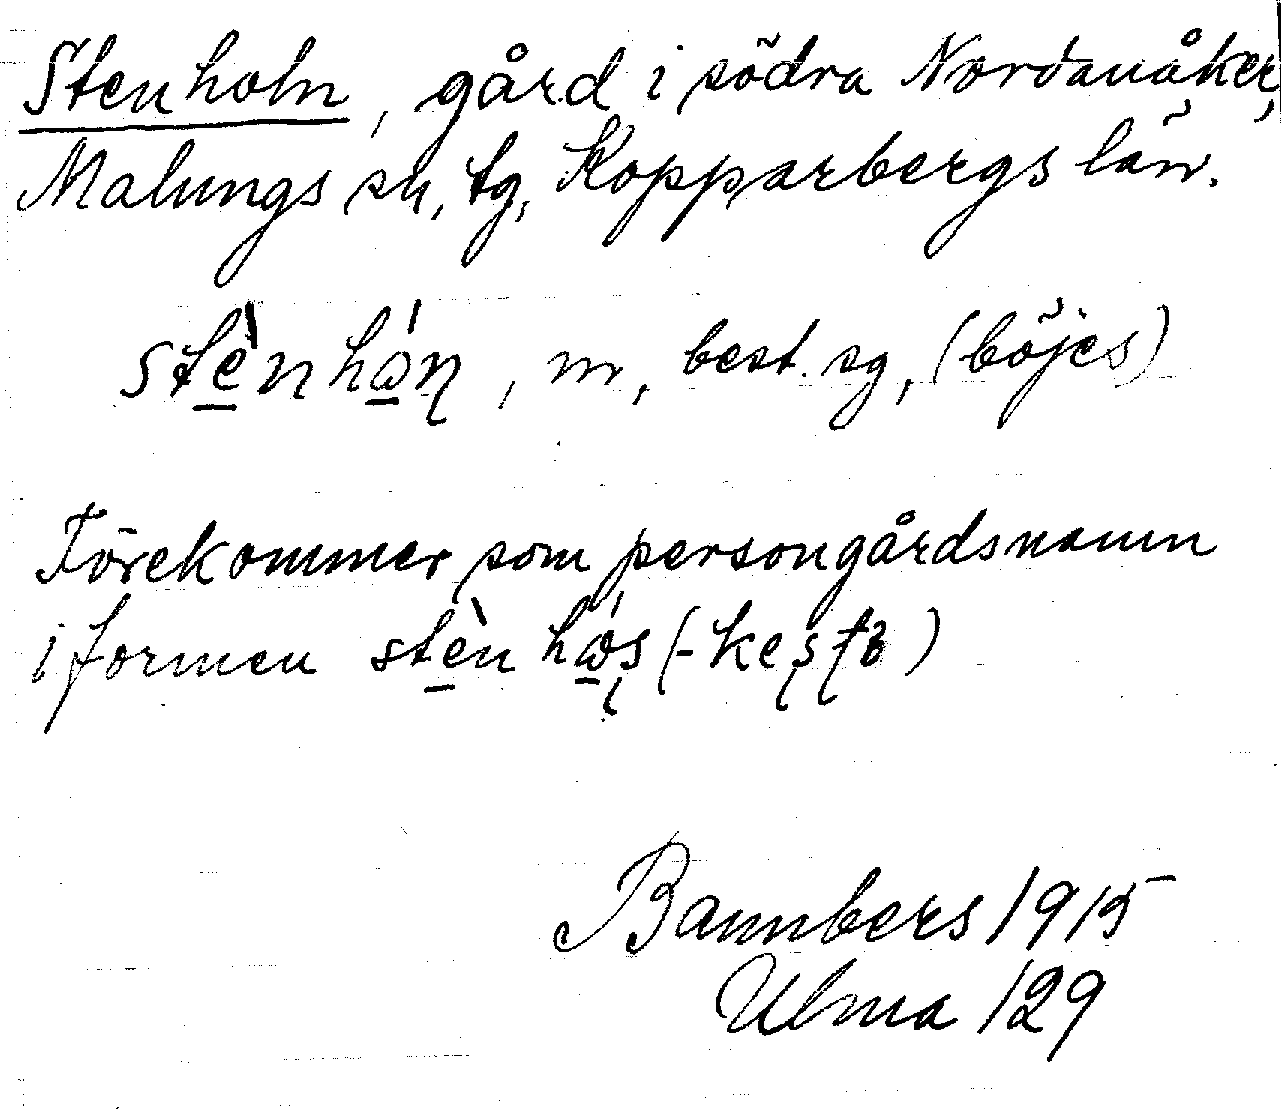 Stenholn, gård i södra Nordanåker,
Malungs sn, tg, Kopparbergs län.
stènhán, m, best. sg, (böjes)
Förekommer som persongårdsnamn
i formen stèn hás (-kesta)
Bannbers 1915
Ulma 129